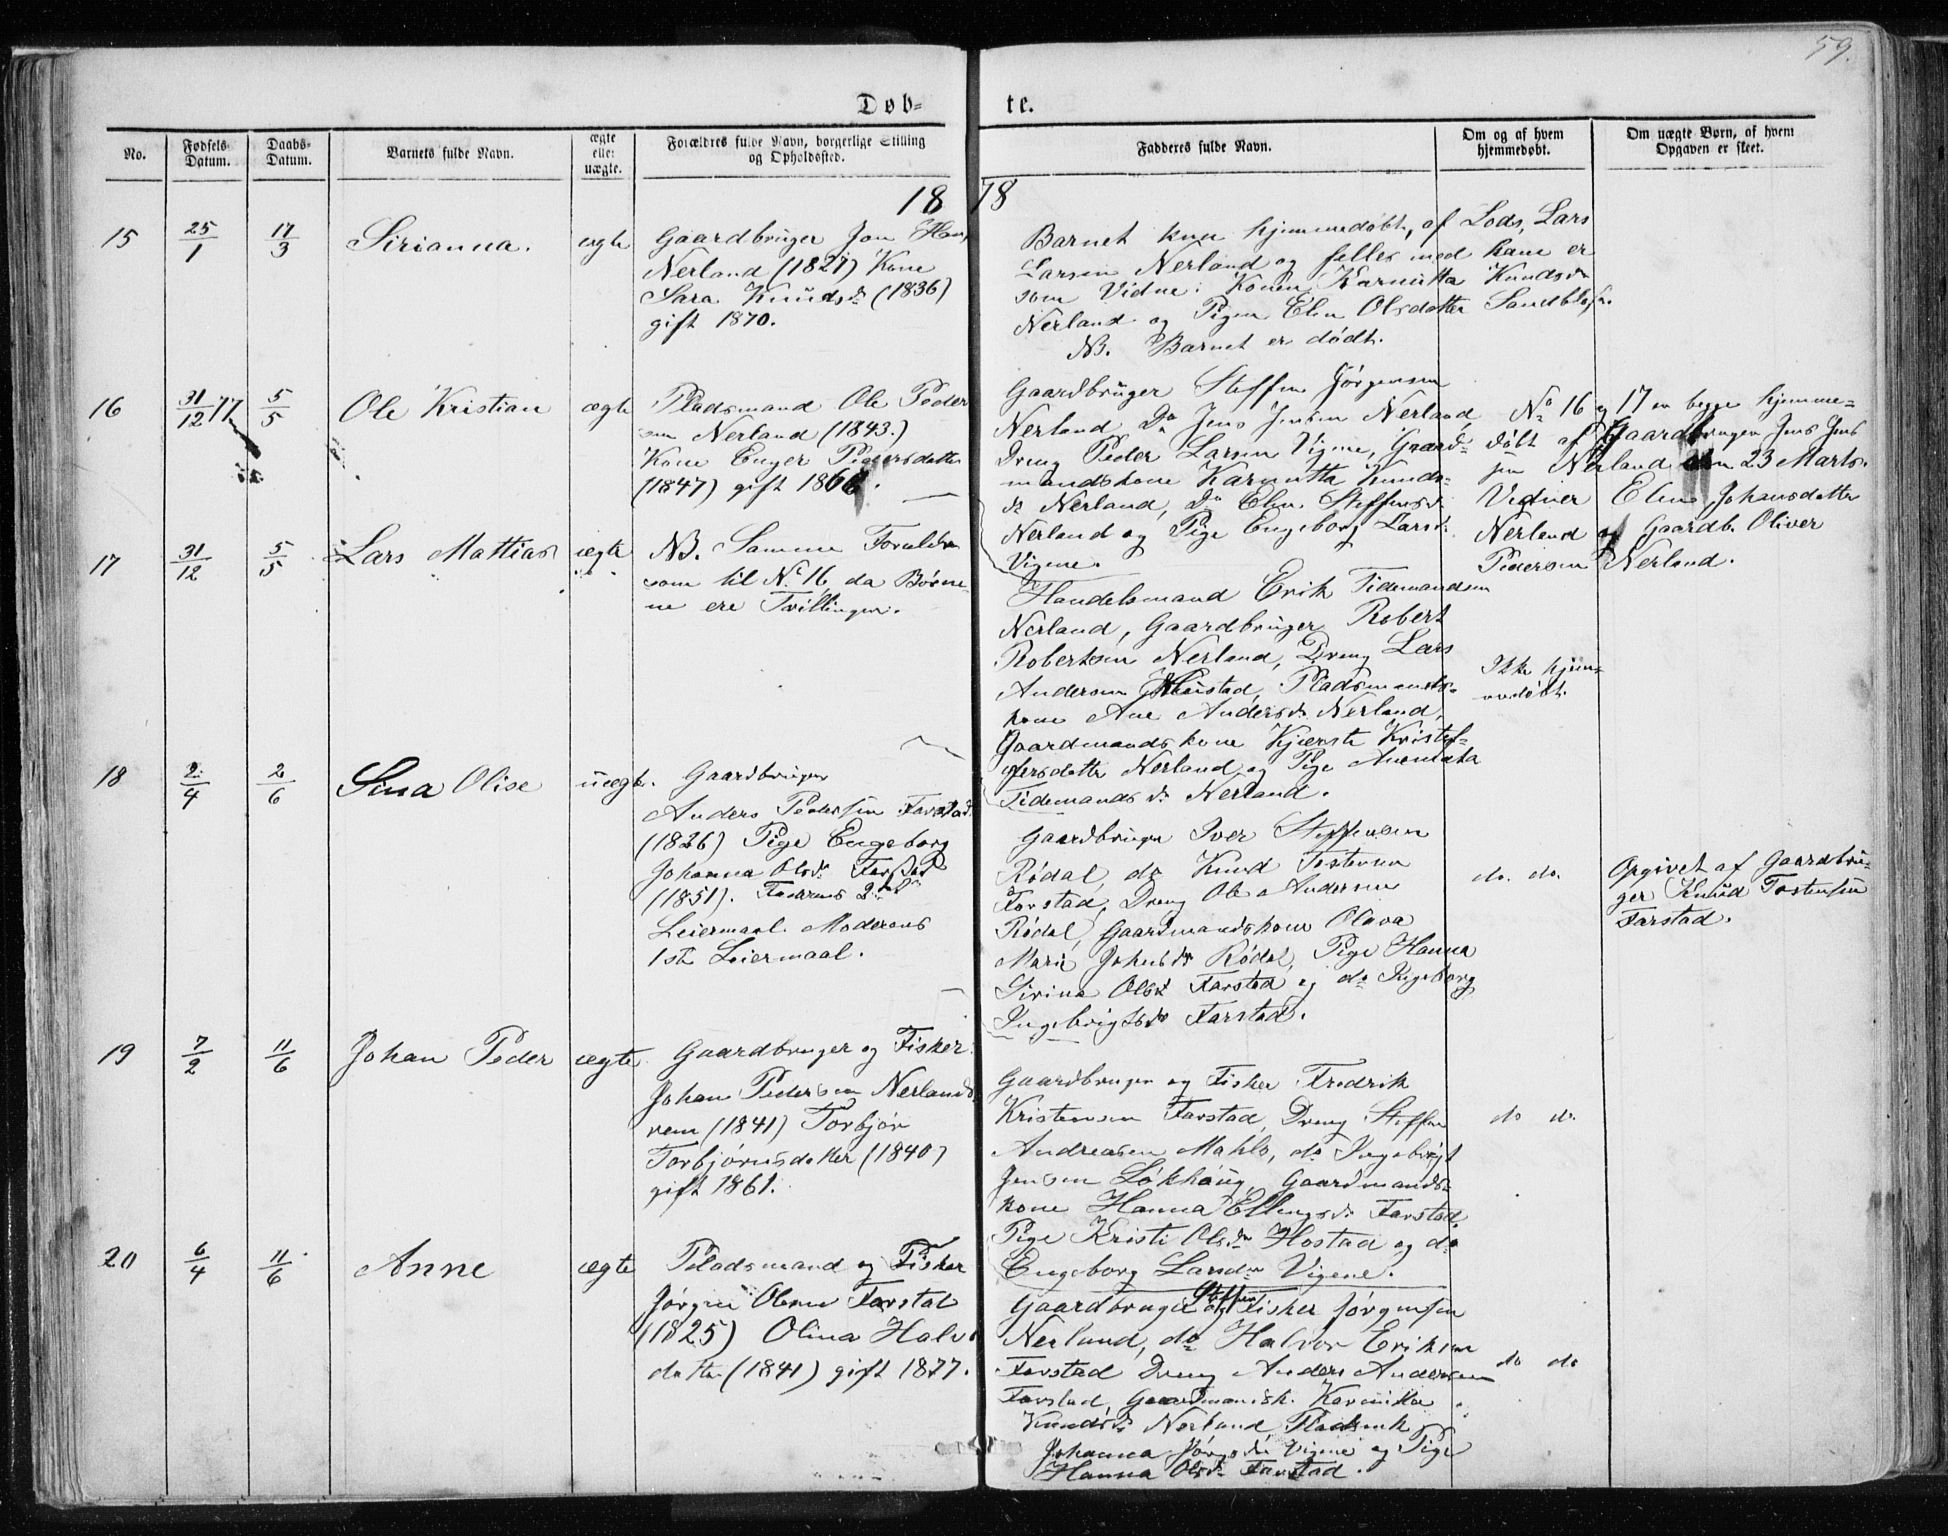 59.
Døb- te.
No.
Fødsels-
Datum.
Daabs-
Datum.
Barnets fulde Navn.
ægte
eller
uægte.
Forældres fulde Navn, borgerlige Stilling
og Opholdssted.
Faddernes fulde Navn.
Om og af hvem
hjemmedøbt.
Om uægte Børn, af hvem
Opgaven er skeet.
1878
15
25/1
17/3
Sirianna.
ægte
Gaardbruger Jon Hans
Nerland (1827) Kone
Sara Knudsdr (1836)
gift 1870.
Barnet kun hjemmedøbt, af Lods, Lars
Larsen Nerland og med ham er
som Vidne: Konen Karnitta Knudsdr
Nerland og Pigen Elen Olsdatter
NB. Barnet er dødt.
16
31/12 77
5/5
Ole Kristian
ægte
Pladsmand Ole Peder
sen Nerland (1843.)
Kone Enger Pedersdatter
(1847) gift 1866.
Gaardbruger Steffen Jørgensen
Nerland Do Jens Jensen Nerland,
Dreng Peder Larsen Vigene, Gaard-
mandskone Karnitta Knuds-
dr Nerland, Do Elen Steffensdr
Nerland og Pige Engeborg Larsdr
Vigene.
No 16 og 17 er begge hjemme-
døbt af Gaardbruger Jens Jens
sen Nerland den 23 Marts.
Vidner Elen Johansdatter
Nerland og Gaardb. Oliver
Pedersen Nerland.
17
31/12
5/5
Lars Mattias
ægte
NB. Samme Forældre
som til No 16, da Børne-
ne ere Tvillinger.
Handelsmand Erik Tidemandsen
Nerland, Gaardbruger Robert
Robertsen Nerland, Dreng Lars
Andersen Pladsmands-
kone Ane Andersdr Nerland,
Gaardmandskone Kjersti Kristof-
fersdatter Nerland og Pige
Tidemandsdr Nerland.
Ikke hjem-
medøbt.
18
2/4
2/6
Sina Olise
uægte.
Gaardbruger
Anders Pedersen Farstad
(1826) Pige Engeborg
Johanna Olsdr Farstad
(1851). Faderens 2det
Leiermaal. Moderens
1ste Leiermaal.
Gaardbruger Iver Steffensen
Rødal, do Knud Tostensen
Farstad, Dreng Ole Andersen
Rødal, Gaardmandskone Olava
Marie Johnsdr Rødal, Pige Hanna
Sirina Olsdr Farstad og do Ingeborg
Ingebrigtsdr Farstad.
do. do.
Opgivet af Gaardbru-
ger Knud Tostensen
Farstad.
19
7/2
11/6
Johan Peder
ægte
Gaardbruger og Fisker
Johan Pedersen Nerlands
vem (1841) Torbjør
Torbjørnsdatter (1840)
gift 1861.
Gaardbruger og Fisker Fredrik
Kristensen Farstad, Dreng Steffen
Andreasen Mahlo, do Ingebrigt
Jensen Løkhaug, Gaardmands-
kone Hanna Ellingsdr Farstad,
Pige Kristi Olsdr Hostad og do
Engeborg Larsdr Vigene.
do do.
20
6/4
11/6
Anne
ægte
Pladsmand og Fisker
Jørgen Olsen Farstad
(1825) Olina Halvors
datter (1841) gift 1877.
Gaardbruger og Steffen Fisker Jørgensen
Nerland, do Halvor Eriksen
Farstad Dreng Anders Andersen
Farstad, Gaardmandsk. Karnitta
Knudsdr Nerland, Pladsmk
Johanna Jørgsdr Vigene og Pige
Hanna Olsdr Farstad.
do do